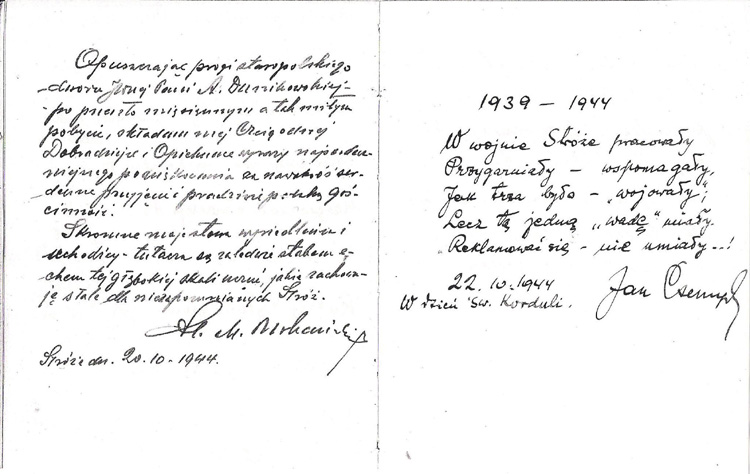 Opuszczając progi staropolskiego
dworu Jwnej Pani A. Dunikowskiej –
po przeszło miesięcznym a tak miłym
pobycie, składam mej Czcigodnej
Dobrodziejce i Opiekunce wyrazy najserdecz-
niejszego podziękowania za nawskroś ser-
deczne przyjęcie i prawdziwie polską goś-
cinność.
Skromne moje słowa wysiedleńca i
uchodźcy – tułacza są zaledwie słabem e-
chem tej głębokiej wdzięczności, jaką zachowa-
ję stale dla niezapomnianych Stróż.
Al. M.
Stróże dn. 20-10-1944.
1939 – 1944
W wojnie Stróże pracowały
Przygarniały – wspomagały,
Jak trza było – „wojowały";
Lecz tę jedną „wadę" miały.
Reklamować się – nie umiały..!
22.10.1944
W dzień Św. Korduli.
Jan